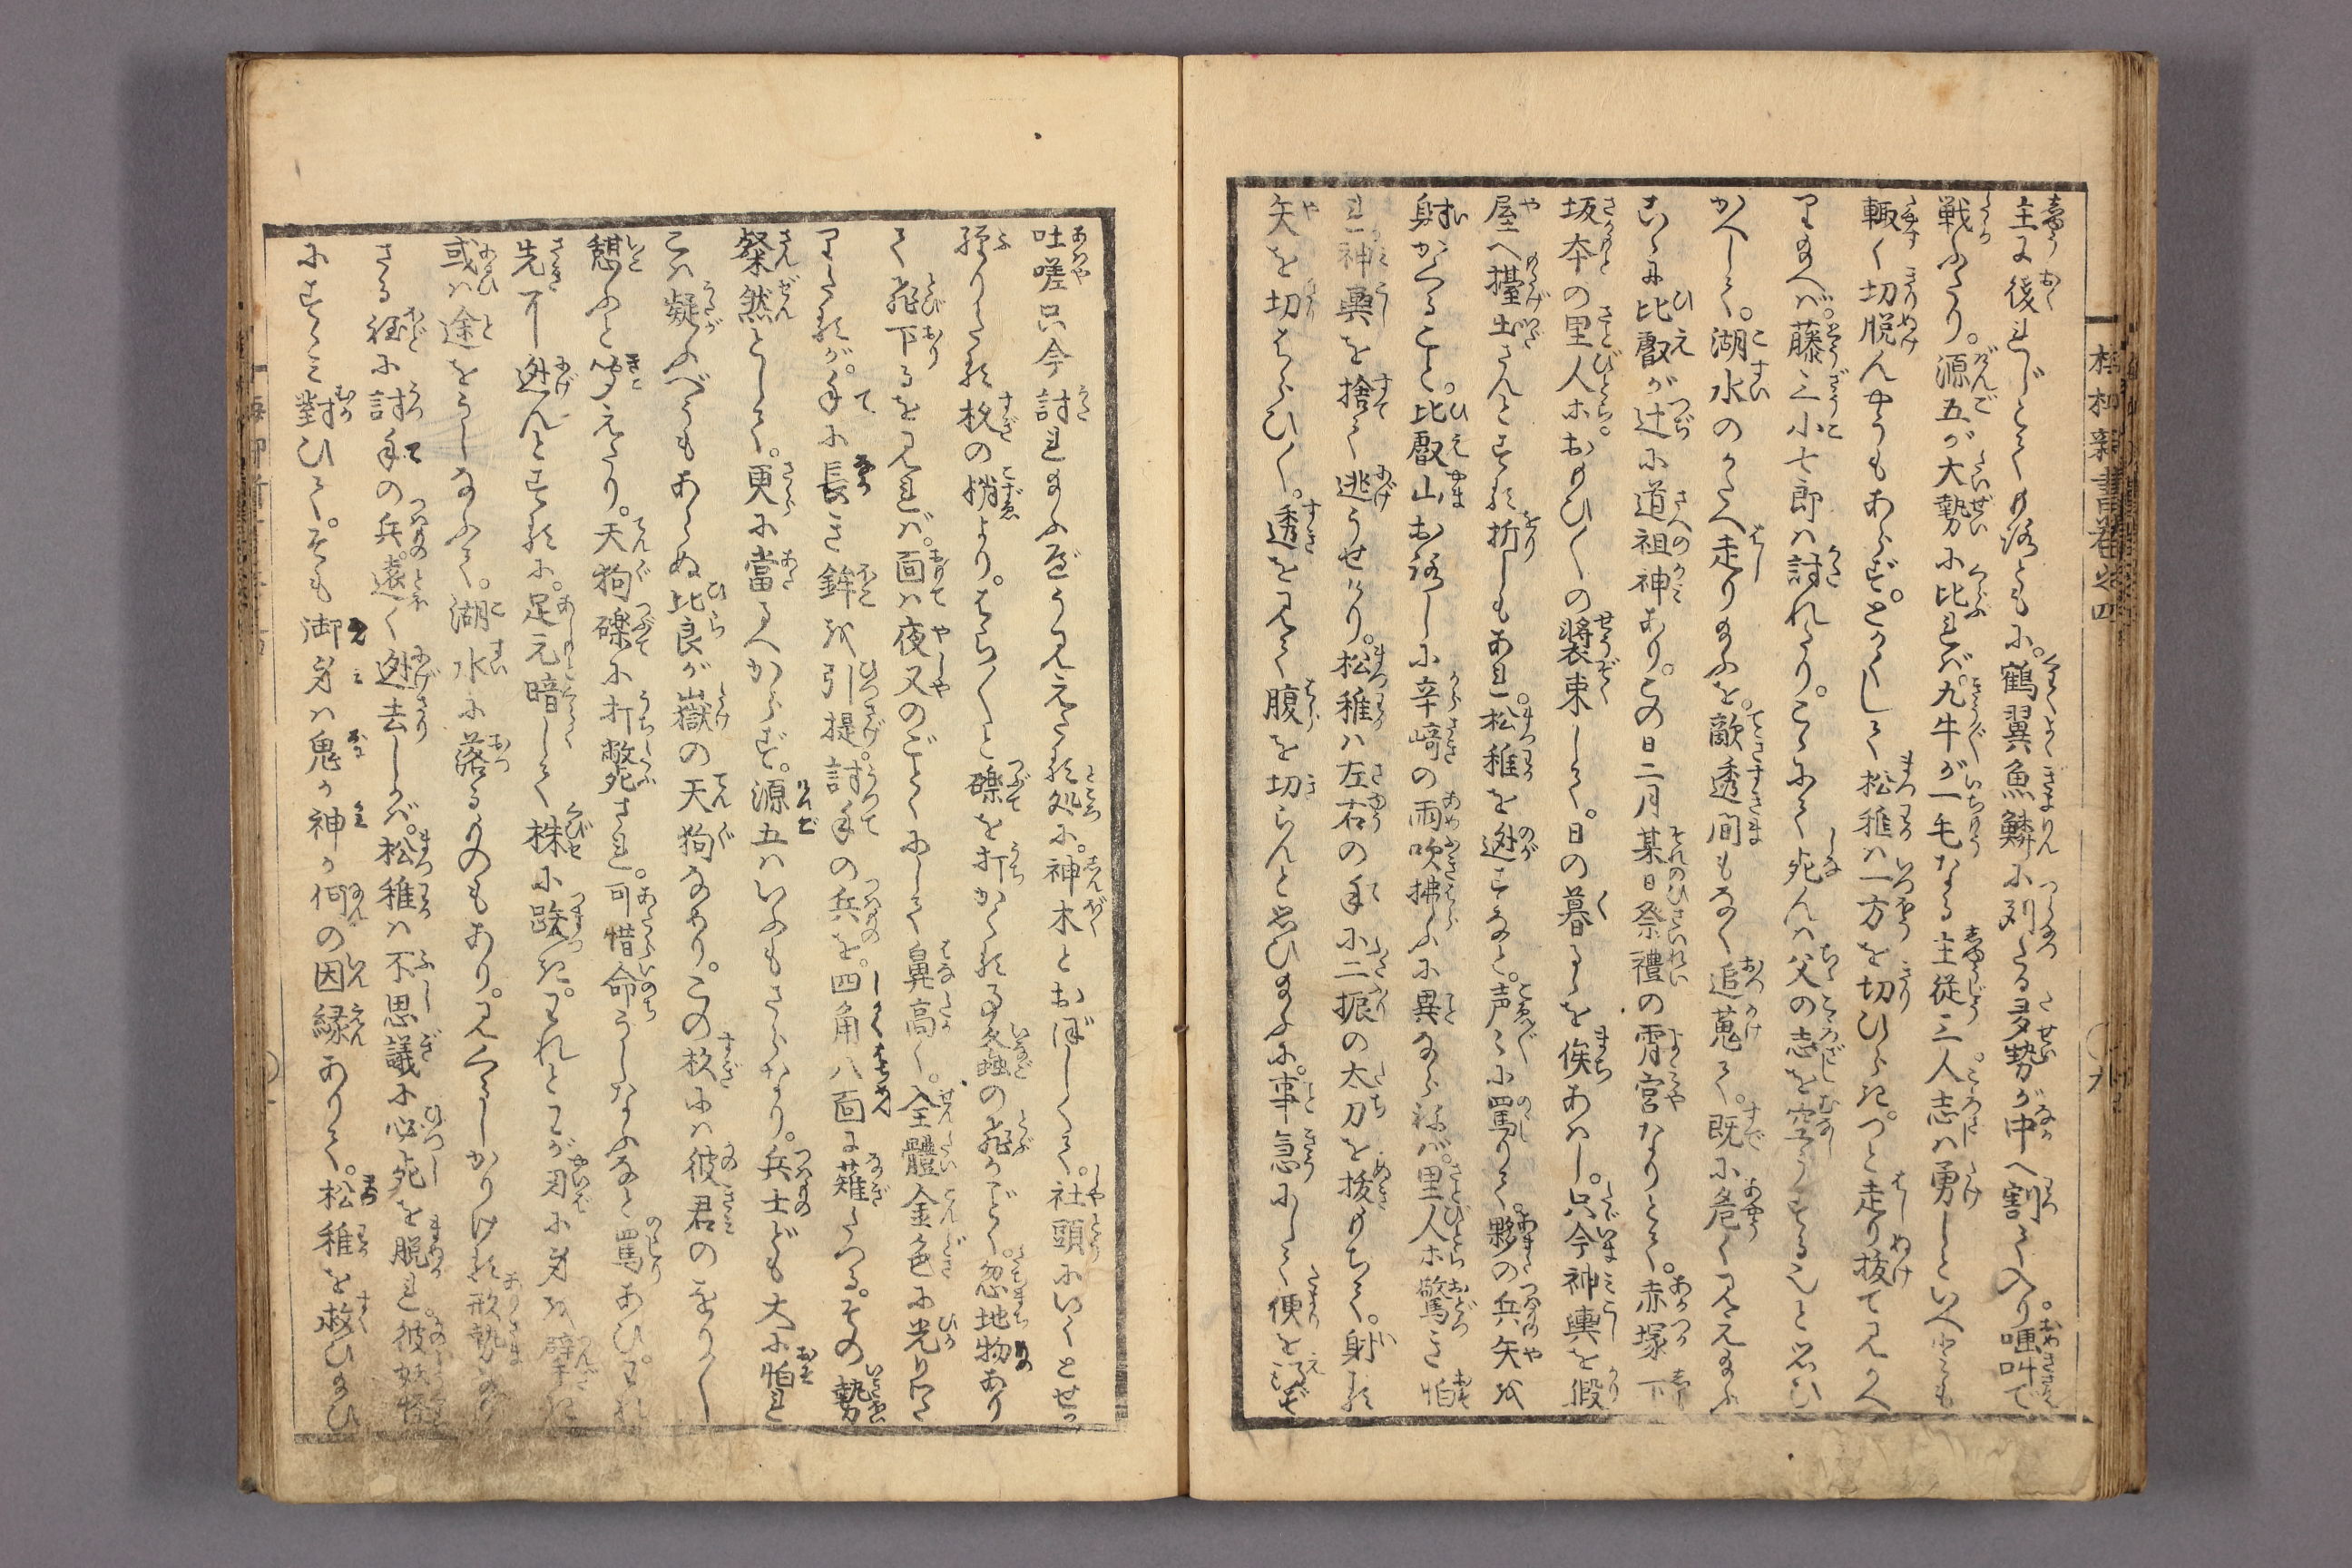 主に後れじとてや落ともに。鶴翼魚鱗に列たる多勢が中へ割て入り。哽叫で
戦ふたり。源五が大勢に比れば。九牛が一毛なる主従三人志は勇しといへども
輙く切脱んやうもあらず。とかくして松稚は一方を切ひらき。つと走り抜て見かへ
りたまへば。藤三小七郎は討れたり。こゝにて死んは父の志を空うするなりと思ひ
かへして。湖水のかたへ走りたまふを。敵透間もなく追蒐て。既に危く見えたまふ
こゝに比叡が辻に道祖神あり。この日二月某日祭禮の宵宮なりとて。赤塚下
坂本の里人ホおもひ〳〵の装束して。日の暮るゝを俟あはし。只今神輿を假
屋へ擡出さんとする折しもあれ。松稚を迯すなと。声〻に罵りて。夥の兵矢を
射かくること。比叡山おろしに辛崎の雨吹拂ふに異ならねば。里人ホ驚き怕
れ神輿を捨て逃うせけり。松稚は左右の手に二振の太刀を抜もちて。射る
矢を切はらひ〳〵。透を見て腹を切らんと思ひたまふに。事急にして便を得ず
吐嗟只今討れたまふべう見えたる処に。神木とおぼしくて。社頭にいくとせか
経りたる杉の梢より。はら〳〵と礫を打かくる事蝗の飛がごとく。忽地物あり
て飛下るを見れば。面は夜叉のごとくにして鼻高く。全體金色に光りわた
りたるが。手に長き鉾を引提。討手の兵を。四角八面に薙たつる。その勢
粲然として。更に當るべからず。源五はいふもさらなり。兵士ども大に怕れ
こは疑ふべうもあらぬ比良が嶽の天狗なめり。この杉には彼君のをり〳〵
憩ふと聞えたり。天狗礫に打斃され。可惜命うしなふなと罵あひ。われ
先に迯んとするに。足元暗して株に跌き。われとわが刃に身を劈き
或は途をうしなふて。湖水に落るものもあり。見ぐるしかりける形勢なり
さる程に討手の兵遠く迯去しかば。松稚は不思議に必死を脱れ。彼妖怪
にすゝみ對ひて。そも御身は鬼か神か何の因縁ありて。松稚を救ひたまひ